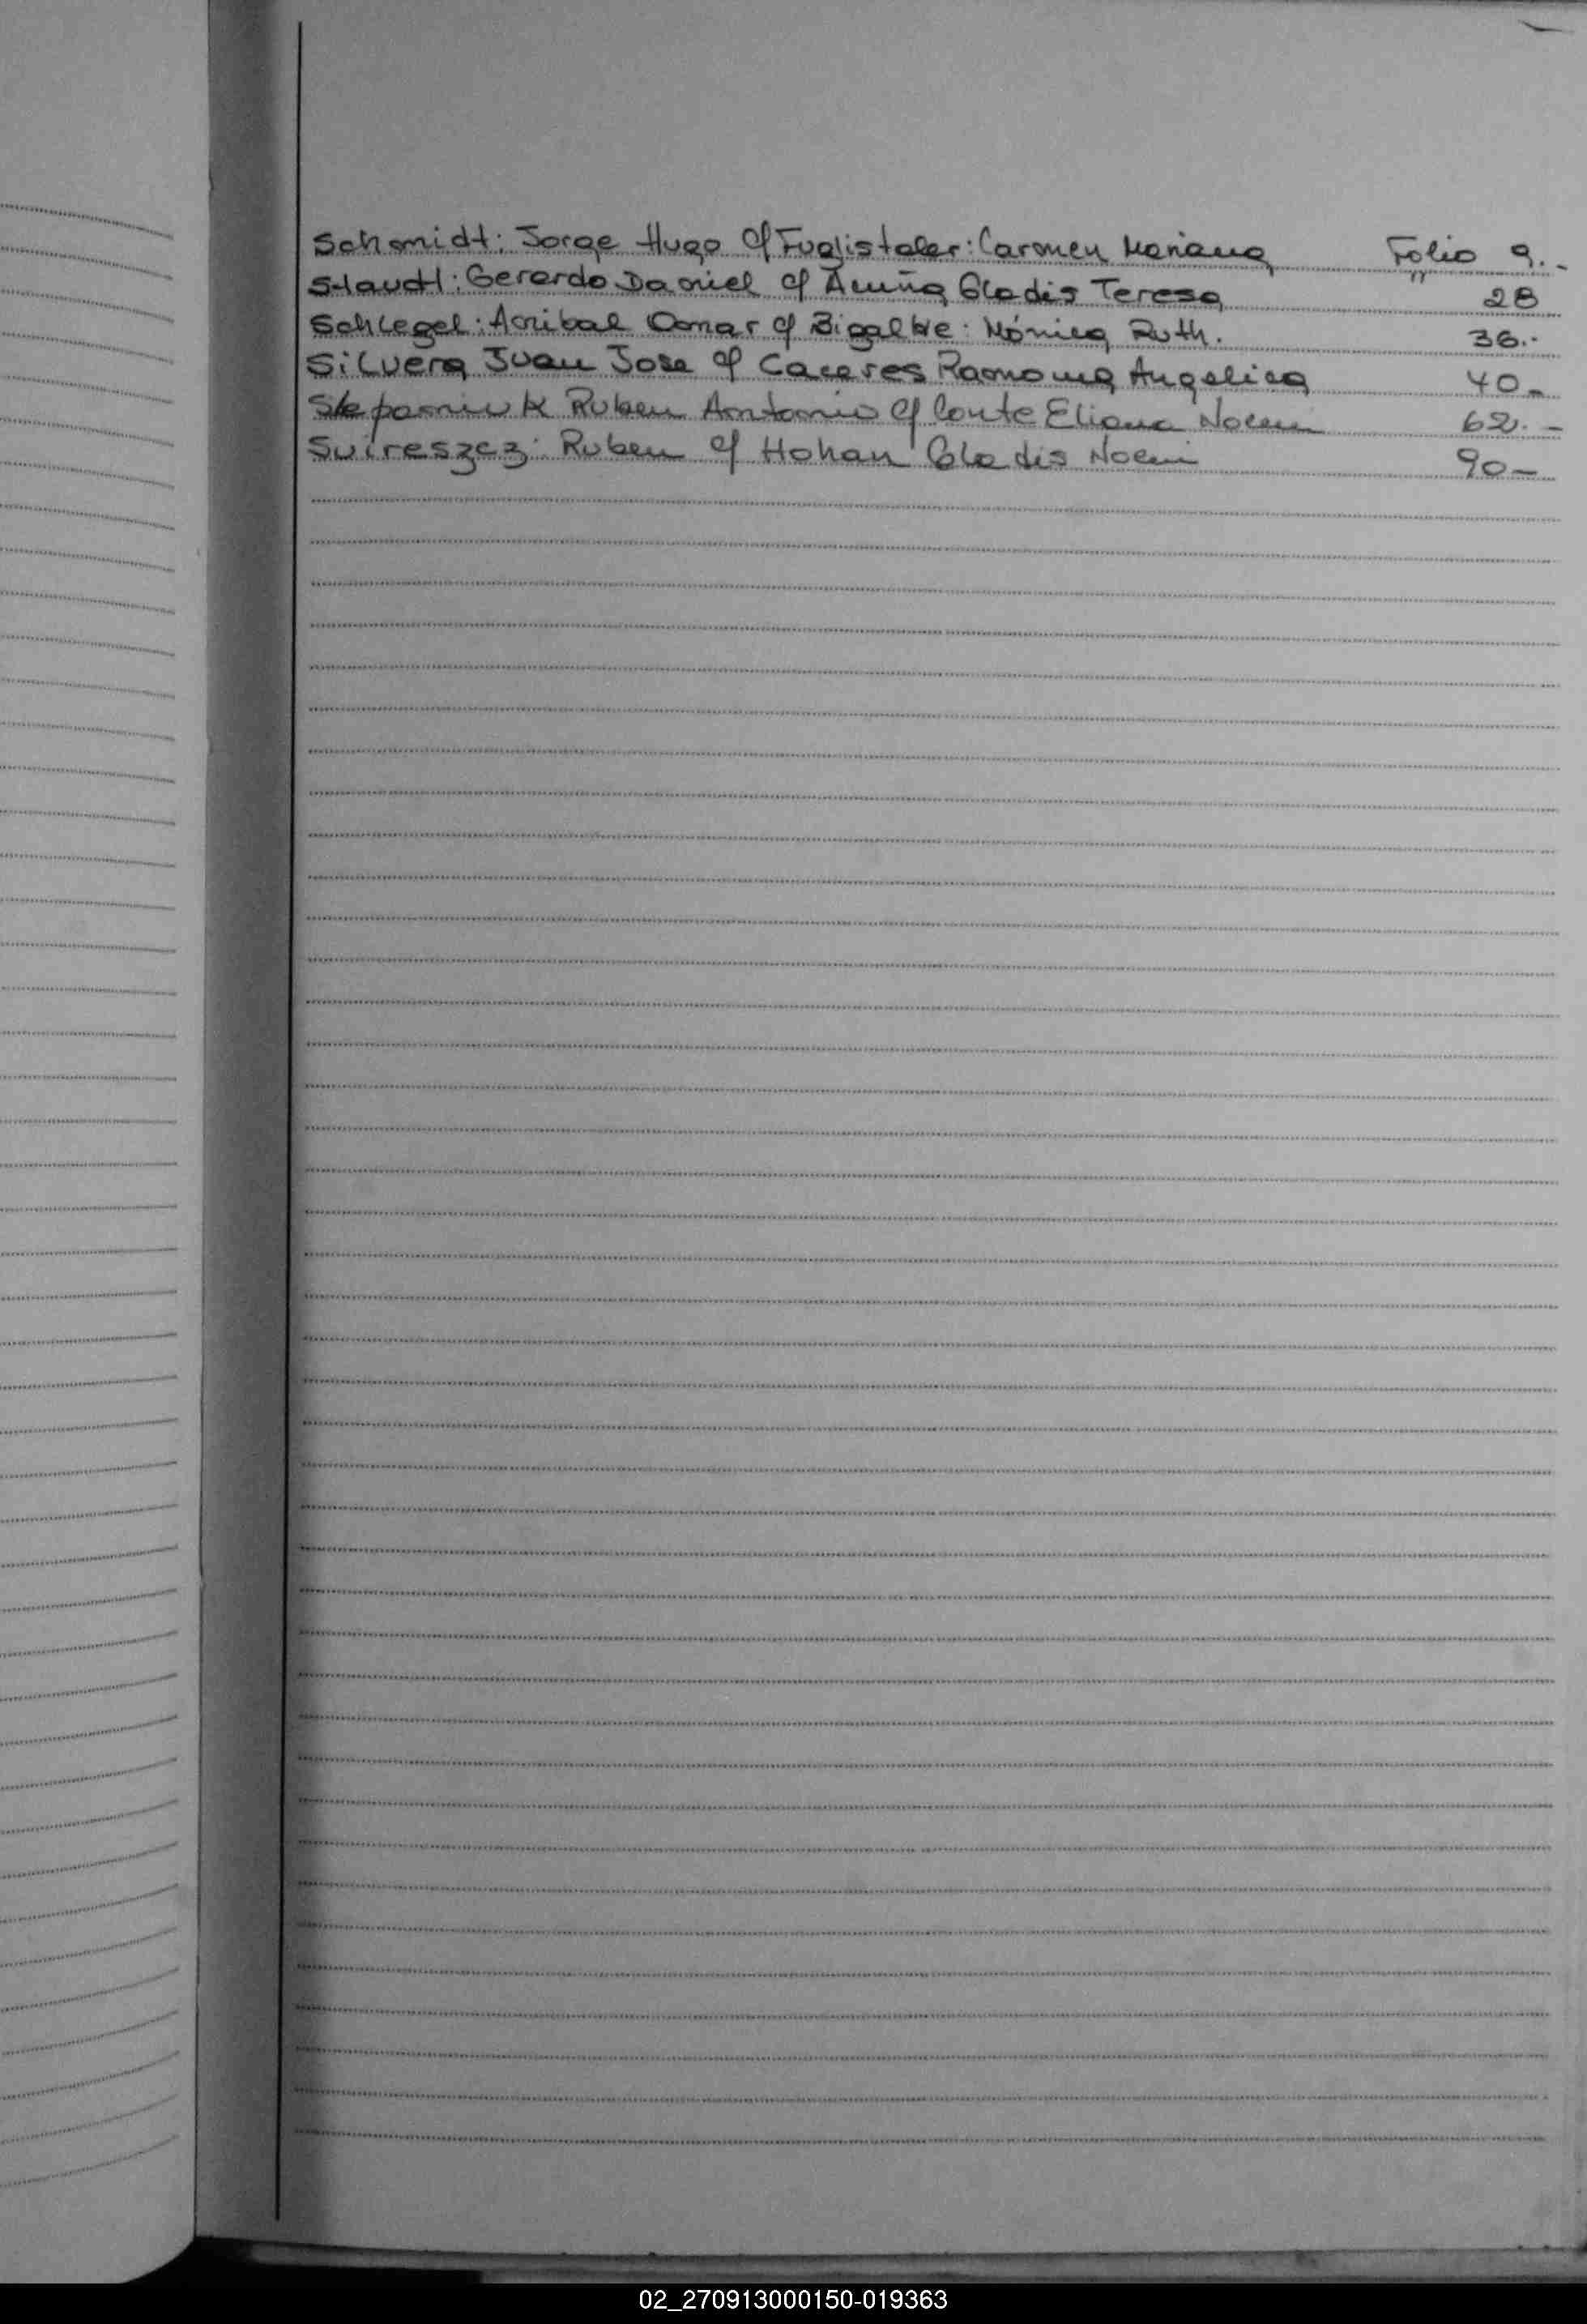 Schmidt: Jorge Hugo c/ Fuglistaler: Carmen Mariana Folio 9.-
Staudt: Gerardo Daniel c/ Acuña Gladis Teresa " 28
Schlegel: Anibal Omar c/ Bigalke: Mónica Ruth. 36.-
Silvera Juan Jose c/ Caceres Ramona Angelica 40-
Stepaniuk Ruben Antonio c/ Conte Eliana Noemi 62.-
Suireszcz: Ruben c/ Hohan Gladis Noemi 90-
02_270913000150-019363